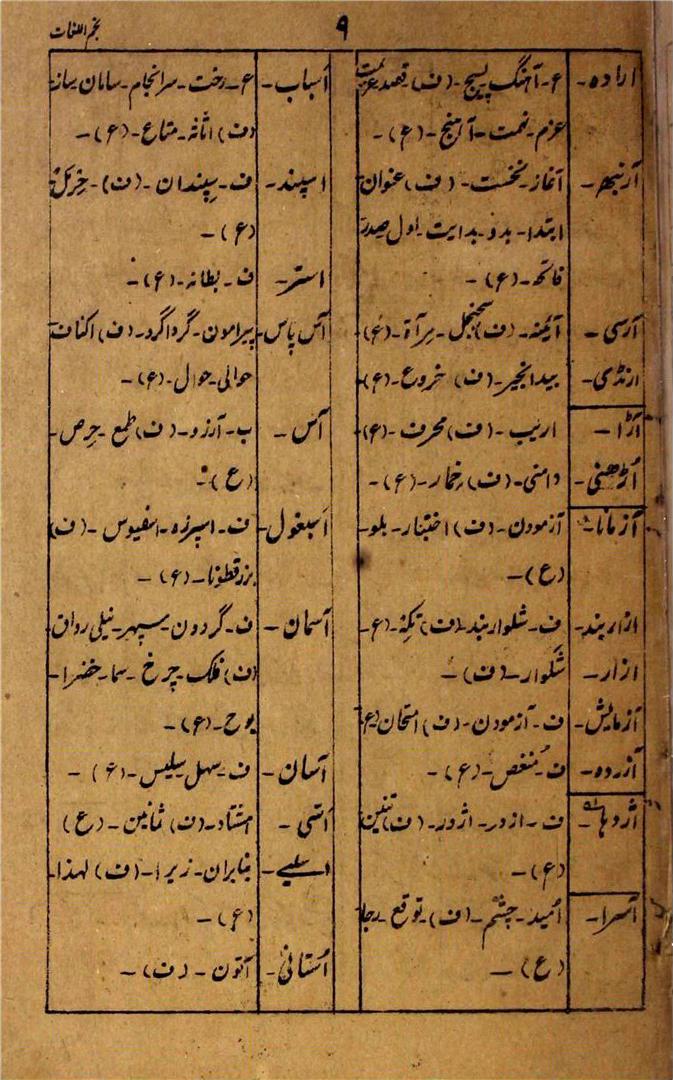 نجم اللغات
۹
ارادہ - ع - آہنگ پسیج - (ف) قصد عزیمت
عزم - نہمت - آہنج - (ع) -
آرنبھ - آغاز - نخست - (ف) عنوان
ابتدا - بدو - بدایت - اول صدر
فاتحہ - (ع) -
آرسی - آئینہ - (ف) سجنجل - مرآة - (ع) -
ارنڈی - بیدانجیر - (ف) خروع - (ع) -
آڑا - اریب - (ف) محرف - (ع) -
اُڑھنی - دامنی - (ف) خمار - (ع) -
آزمانا - آزمودن - (ف) اختبار - بلو -
(ع) -
ازاربند - ف - شلواربند - (ف) تِکّہ - (ع) -
ازار - شلوار - (ف) -
آزمایش - ف - آزمودن - (ف) امتحان (ع)
آزردہ - ف - منغص - (ع) -
اژدہا - ف - ازدر - اژدر - (ف) تنین
(ع) -
آسرا - اُمید - چشم - (ف) توقع - رجا
(ع) -
اَسباب - ع - رخت - سرانجام - سامان ساز -
(ف) اثاثہ - متاع - (ع) -
اسپند - ف - سپندان - (ف) -
(ع) -
استر - ف - بطانہ - (ع) -
آس پاس - پیرامون - گرداگرد - (ف) اکناف
حوالی - حوال - (ع) -
آس - ب - آرزو - (ف) طمع - حرص -
(ع) -
اَسبغول - ف - اسپرزہ - اسفیوس - (ف)
بزرقطونا - (ع) -
آسمان - ف - گردون - سپہر - نیلی رواق
(ف) فلک - چرخ - سما - خضرا -
یوح - (ع) -
آسان - ف - سہل سلیس - (ع) -
اَسّی - ہشتاد - (ف) ثمانین - (ع)
اسلیے - بنابران - زیرا - (ف) لہذا -
(ع) -
اُستانی - آتون - (ف) -